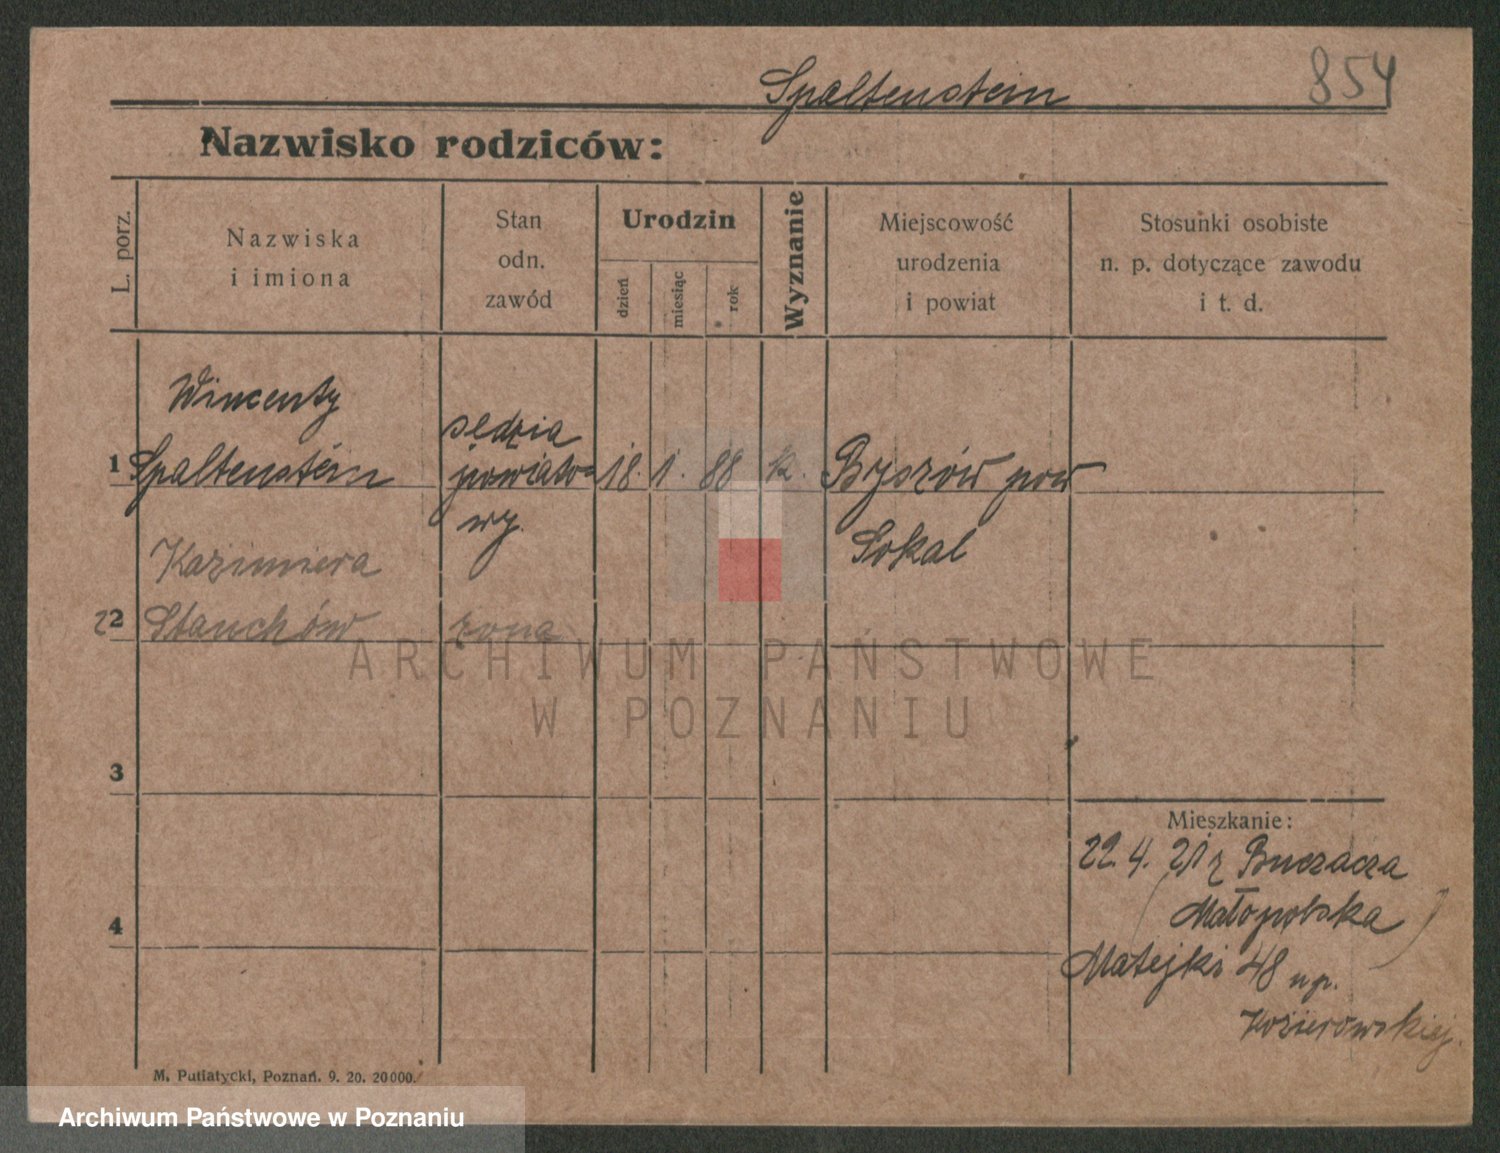 854
Spaltenstein
Nazwisko rodziców:
L. porz.
Nazwiska
i imiona
Stan
odn.
zawód
Urodzin
dzień
miesiąc
rok
Wyznanie
Miejscowość
urodzenia
i powiat
Stosunki osobiste
n. p. dotyczące zawodu
i t. d.
1
Wincenty
Spaltenstein
sędzia
powiato=
wy.
18. 1. 88 k.
Byszów pow
Sokal
2
Kazimiera
Stanchów
żona
3
4
Mieszkanie:
22. 4. 21 z Buczacza
(Małopolska)
Matejki 48 u p.
Kozierowskiej.
M. Putiatycki, Poznań. 9. 20. 20000.
ARCHIWUM PAŃSTWOWE
W POZNANIU
Archiwum Państwowe w Poznaniu